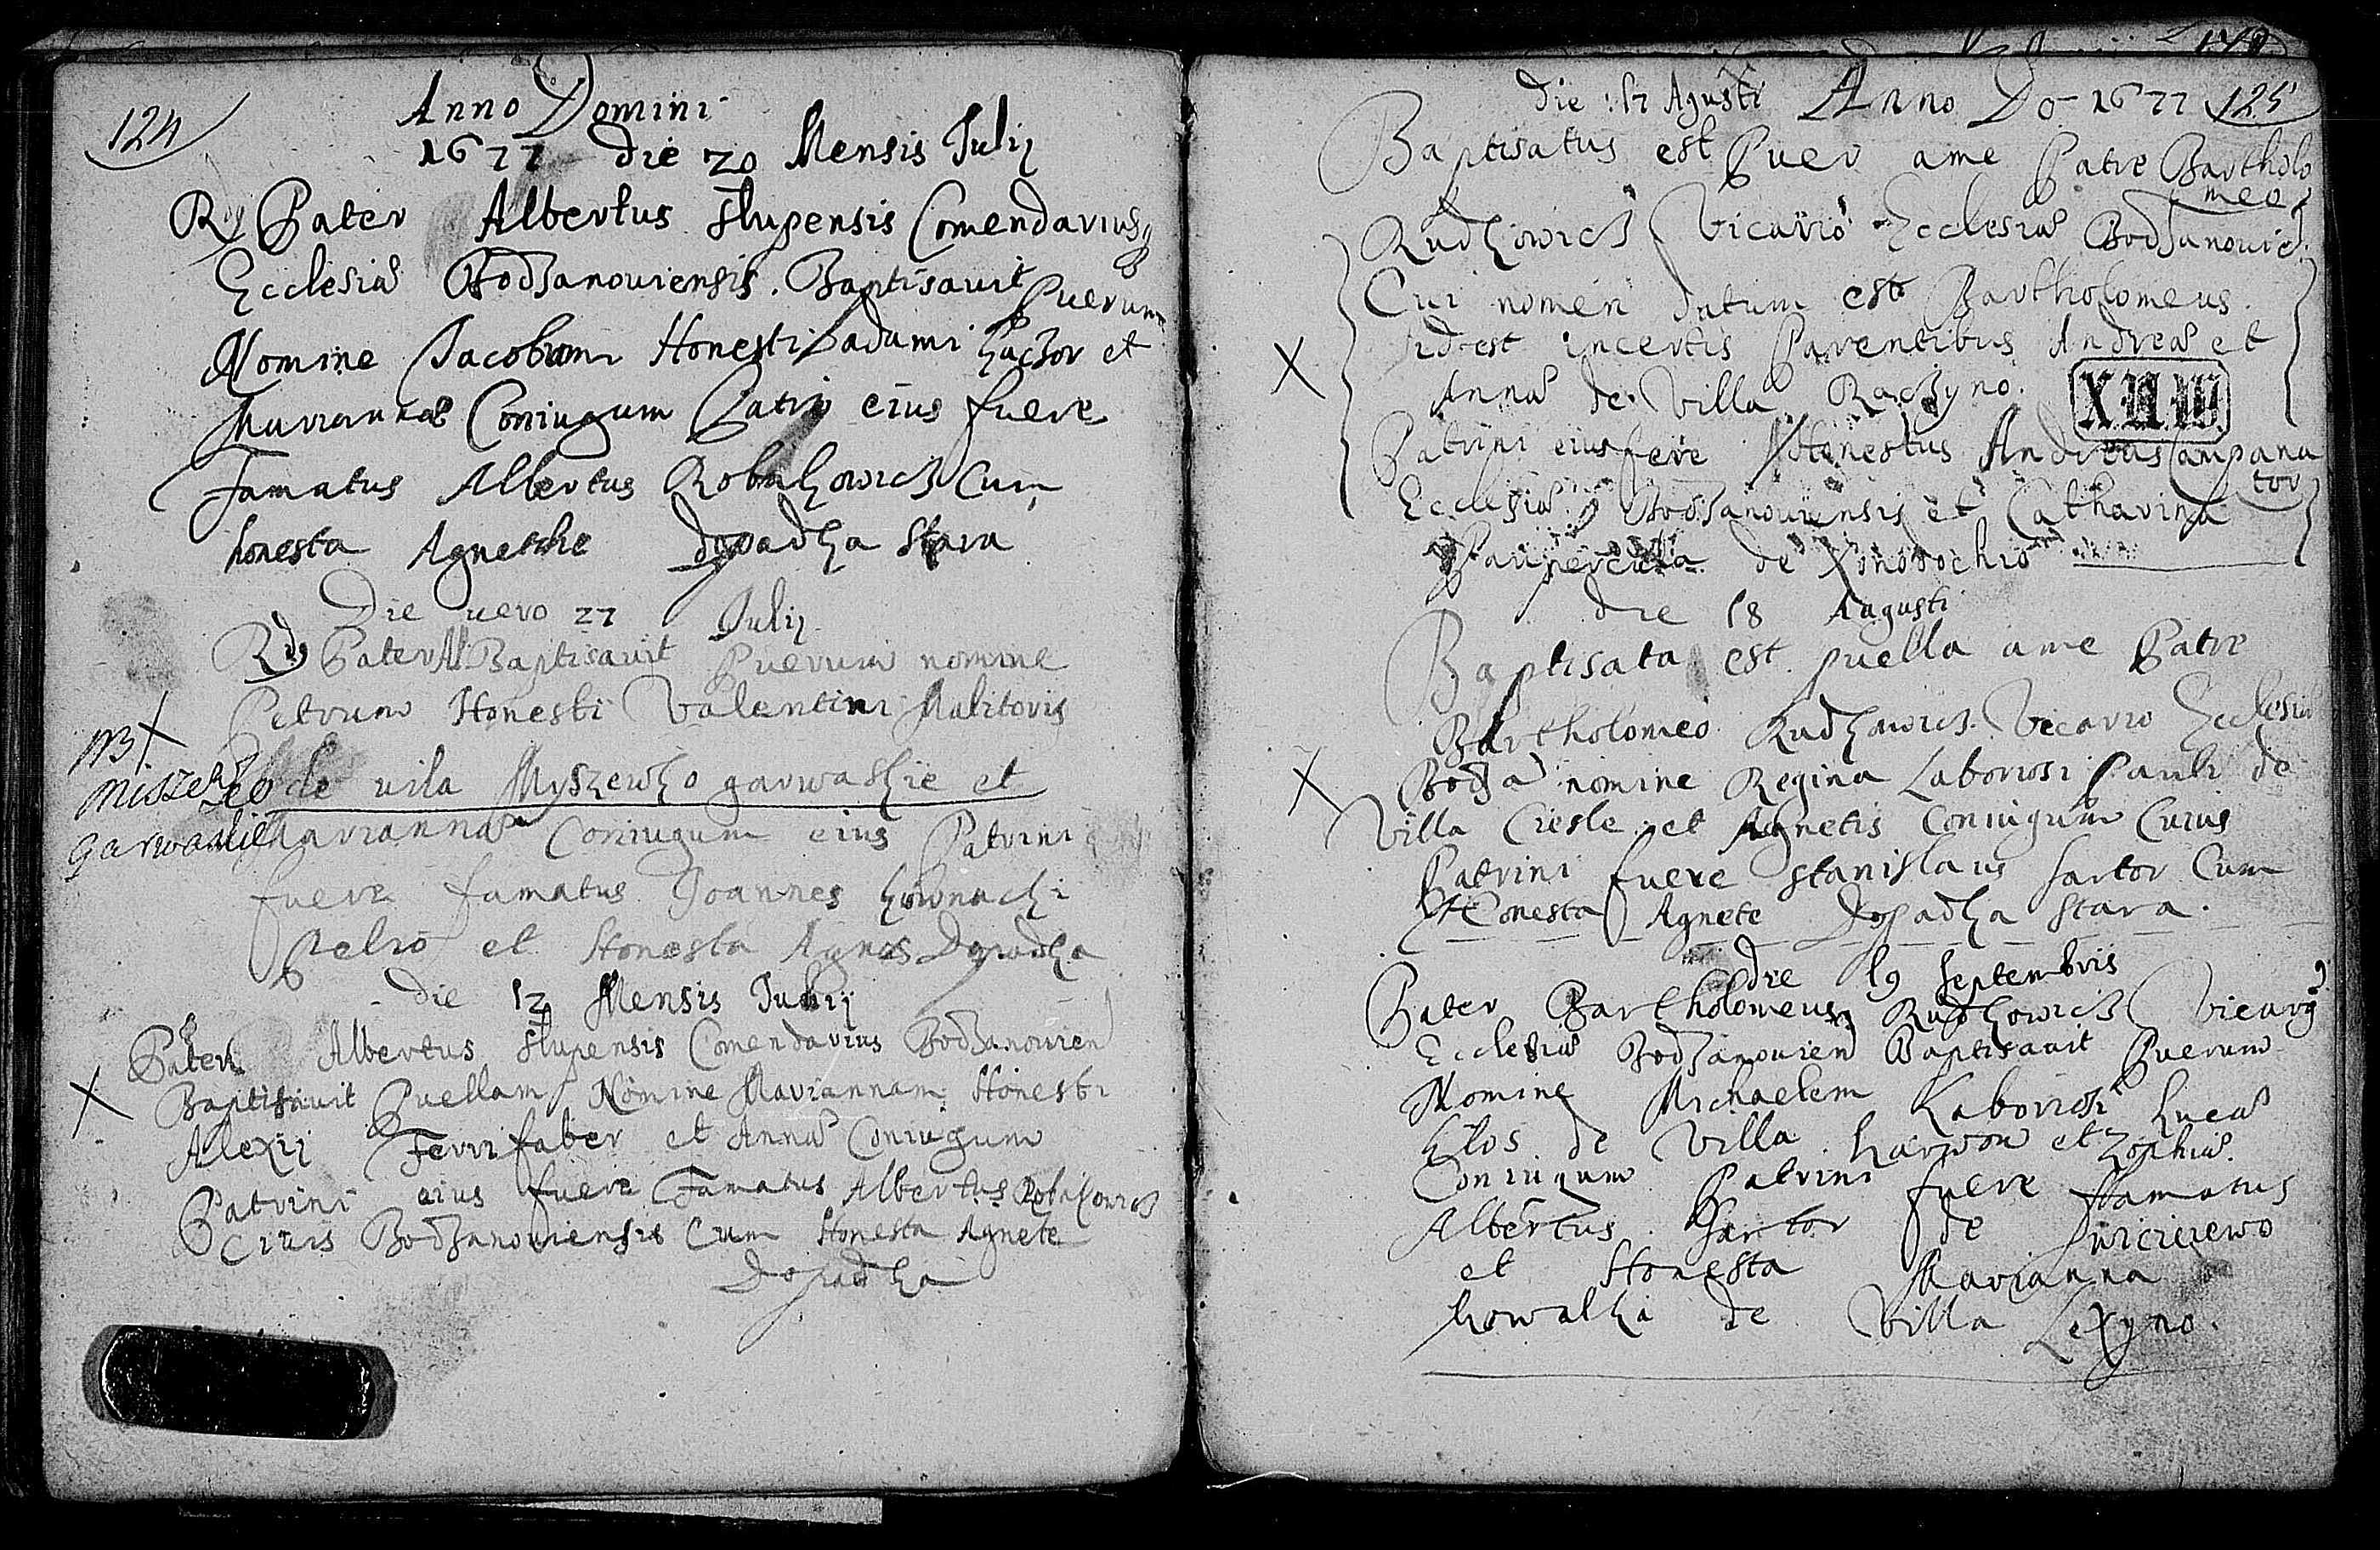 124
Anno Domini
1677 die 20 Mensis Julij
Rꝰ Pater Albertus Slupensis Comendarius
Ecclesiæ Bodzanouiensis. Baptisauit Puerum
Nomine Jacobum Honesti adami et
Mariannæ Coniugum Patrini eius fuere
Famatus Albertus Robakowicz Cum
honesta Agnethe Dopadka Stara
Die uero 27 Julij
Rdꝰ Pater Al Baptisauit Puerum nomine
Petrum Honesti Valentini Mulitoris
NB X
Miszewko de uila Myszewko garwaskie et
Garwaskie Mariannæ Coniugum eius Patrini
fuere famatus Joannes
et Honesta Agnes Dopadka
die 12 Mensis Julij
Pater Albertus Slupensis Comendarius Bodzanouien
X Baptisauit Puellam Nomine Mariannam Honesti
Alexij Ferrifaber et Annæ Coniugum
Patrini eius fuere Famatus Albertus Robakowicz
Ciuis Bodzanouiensis Cum Honesta Agnete
Dopadka
die 17 Agusti Anno Do 1677 125
Baptisatus est Puer ame Patre Bartholo
meo
Rudkowicz Vicario Ecclesiæ Bodzanouie
Cui nomen datum est Bartholomeus.
X id est incertis Parentibus Andreæ et
Annæ de Villa Raczyno.
Patrini eius fere Honestus Andreas Campana
tor
Ecclesiæ Bodzanouiensis et Catharina
Paupercula de Xinodochio
die 18 Augusti
Baptisata est puella ame Patre
Bartholomeo Rudkowicz Vicario Ecclesiæ
X Bodza nomine Regina Laboriosi Pauli de
Villa Ciesle et Agnetis Coniugum Cuius
Patrini fuere Stanislaus Sartor Cum
Honesta Agnete Dopadka Stara.
die 19 Septembris
Pater Bartholomeus Rudkowicz Vicarꝰ
Ecclesiæ Bodzanouien Baptisauit Puerum
Nomine Michaelem Laboriosi Lucæ
Klos de Villa Karwow et Zophiæ
Coniugum Patrini fuere famatus
Albertus Sartor de
et Honesta Marianna
Kowalka de Villa Lexyno.